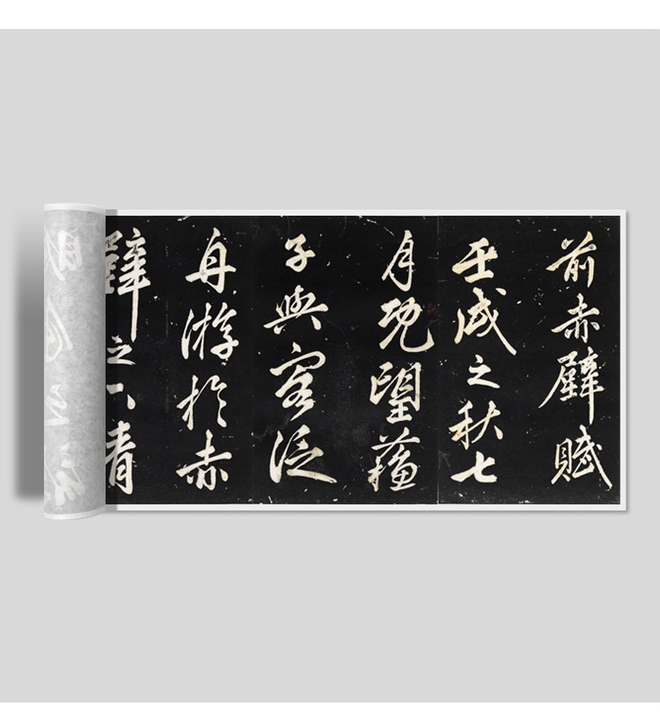 前赤壁賦
壬戌之秋七
月既望蘇
子與客泛
舟游於赤
壁之下清